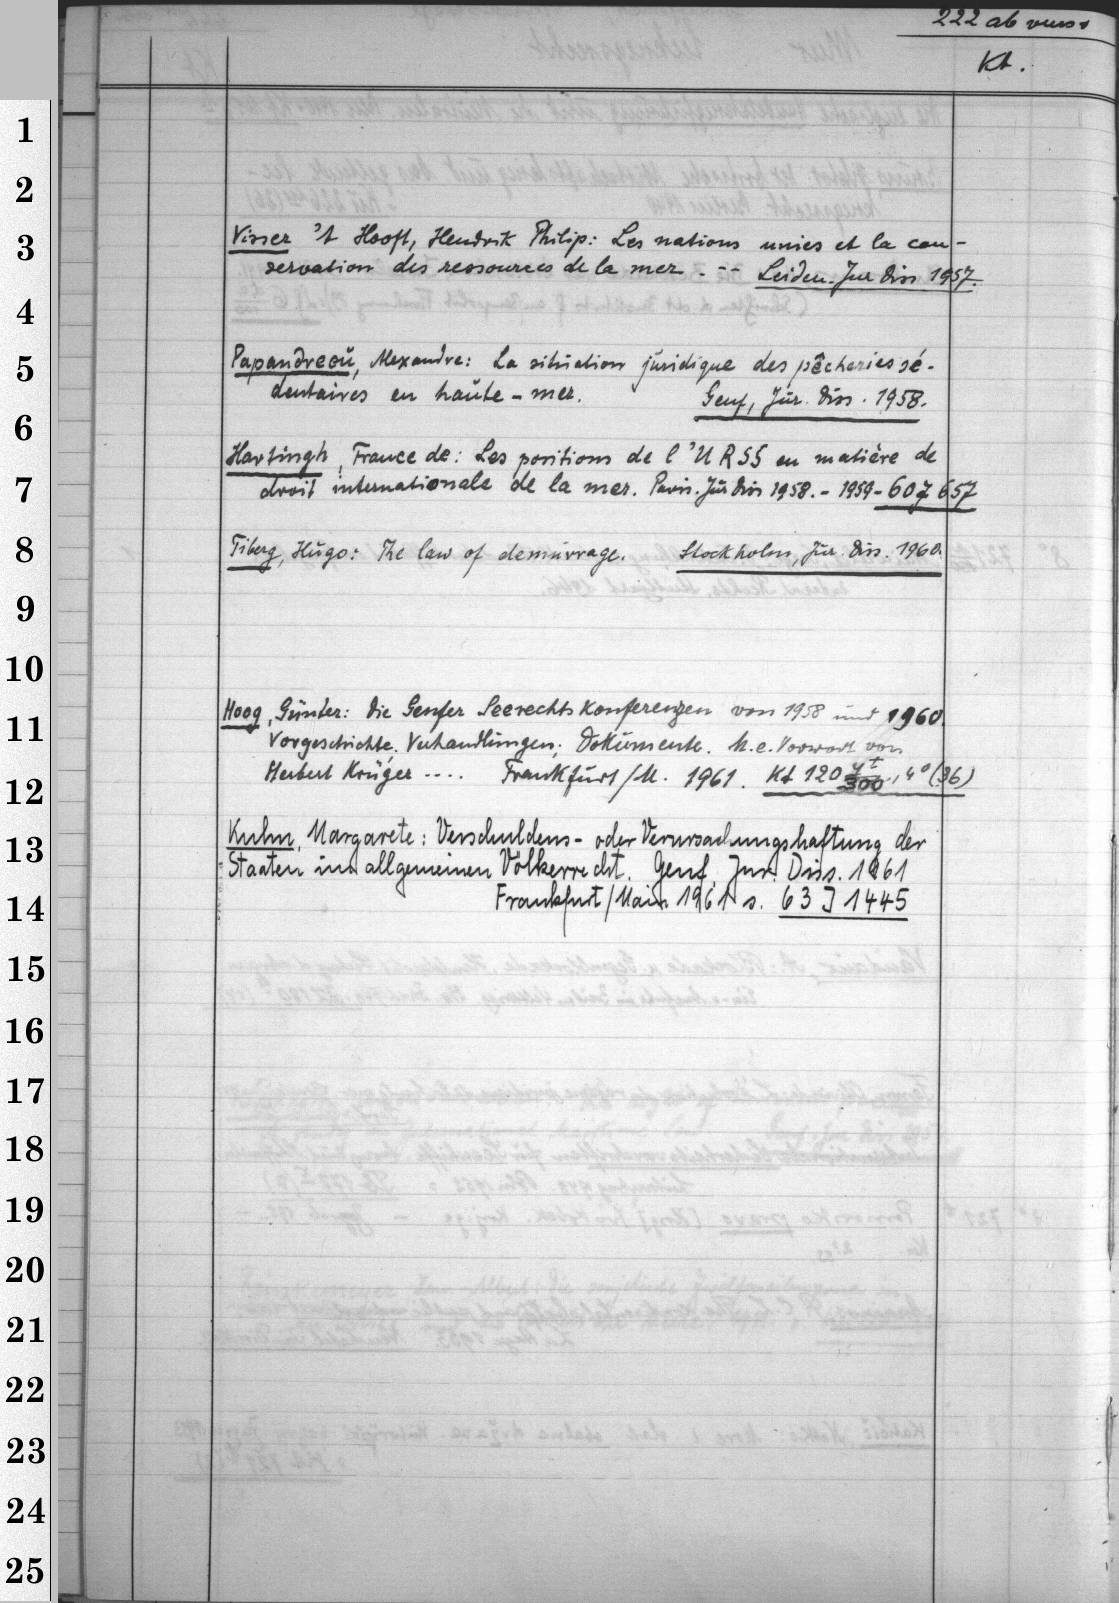 222 ab verso
Kt.
1
2
3
4
5
6
7
8
9
10
11
12
13
14
15
16
17
18
19
20
21
22
23
24
25
Visser 't Hooft, Hendrik Philip: Les nations unies et la con-
servation des ressources de la mer. -- Leiden. Jur Diss 1957.
Papandreoŭ, Alexandre: La situation juridique des pêcheries sé-
dentaires en haŭte-mer. Genf, Jŭr. Diss. 1958.
Hartingh, France de: Les positions de l'URSS en matière de
droit internationale de la mer. Paris. Jŭr Diss 1958. - 1959 - 607 657
Tiberg, Hŭgo: The law of demŭrrage. Stockholm, Jŭr. Diss. 1960.
Hoog, Günter: Die Genfer Seerechtskonferenzen von 1958 und 1960.
Vorgeschichte. Verhandlŭngen. Dokŭmente. M.e. Vorwort von
Herbert Krüger .... Frankfŭrt/M. 1961. Kt 120 /300, 4° (36)
Kuhn, Margarete: Verschuldens- oder Verursachungshaftung der
Staaten im allgemeinen Völkerrecht. Genf, Jur. Diss. 1961
Frankfurt/Main 1961 s. 63 J 1445